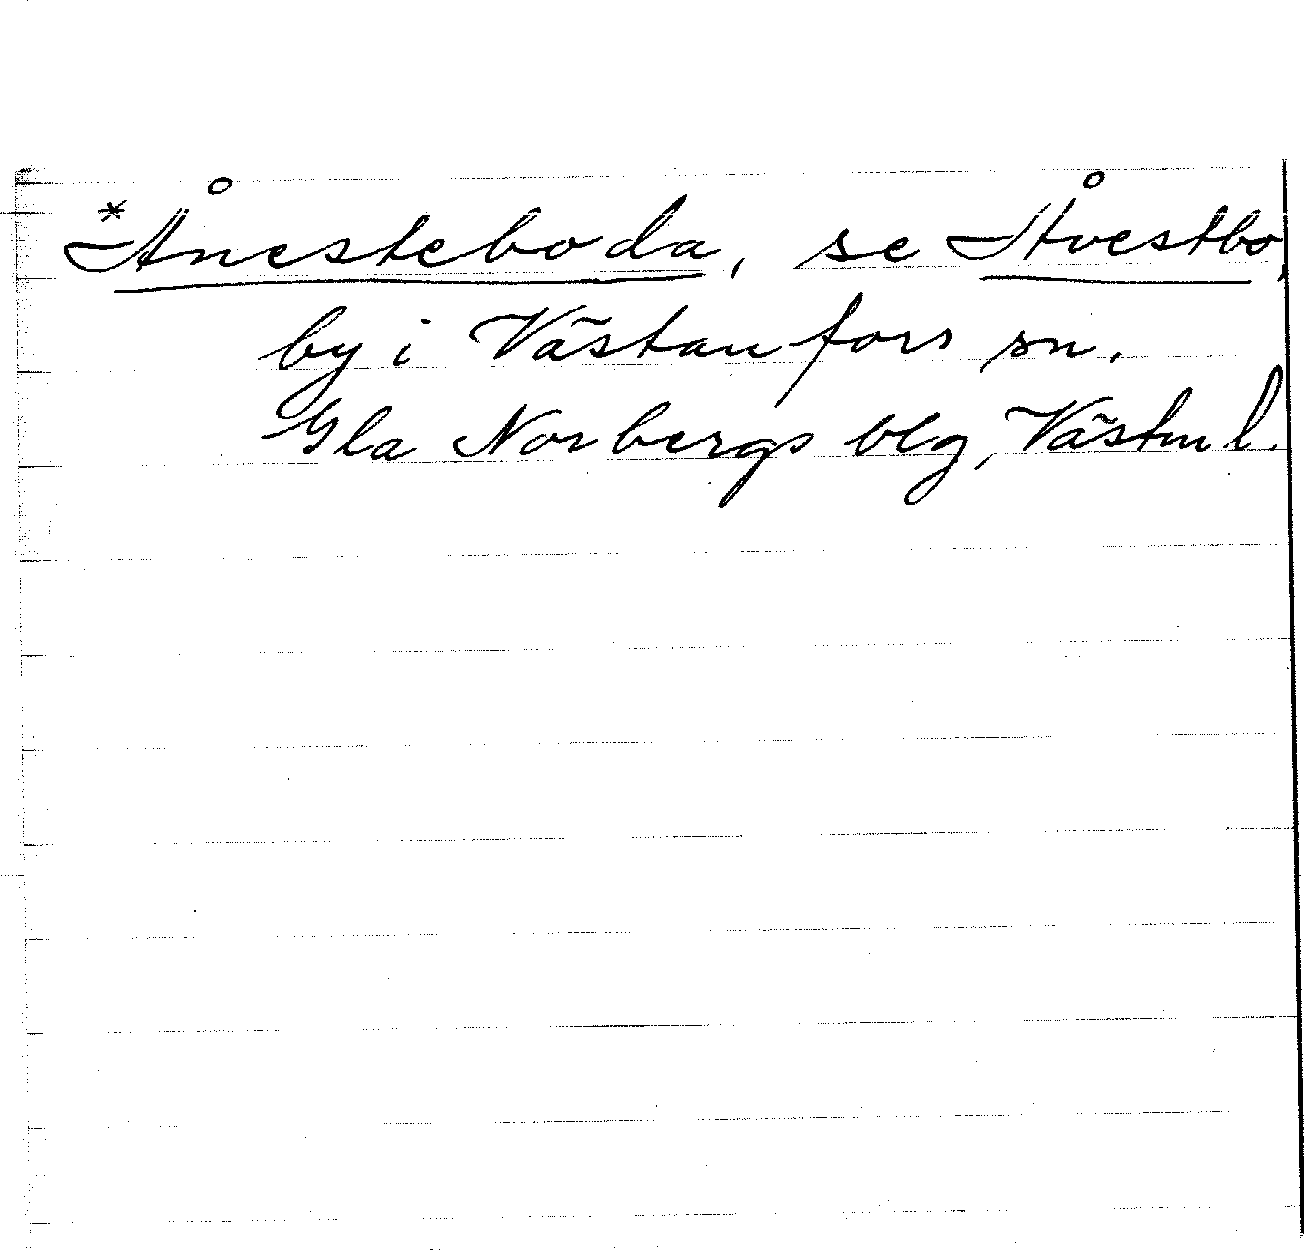 *Ånesteboda, se Åvestbo,
by i Västanfors sn.
Gla Norbergs blg, Västm l.